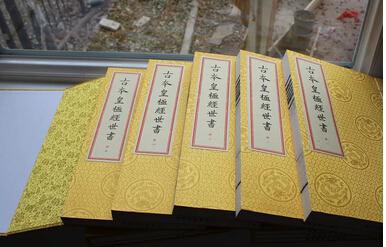 古本皇極經世書
古本皇極經世書
古本皇極經世書
古本皇極經世書
古本皇極經世書